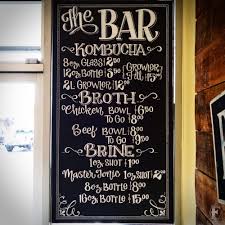 The BAR
KOMBUCHA
8oz GLASS $2.00
12oz BOTTLE $3.50 GROWLER
FILL $15.00
2L GROWLER $12.00
BROTH
Chicken BOWL $6.50
To Go $8.00
Beef BOWL $8.00
To Go $9.50
BRINE
1oz SHOT $1.00
Master Tonic 1oz SHOT $2.00
8oz BOTTLE $8.00
16oz BOTTLE $15.00